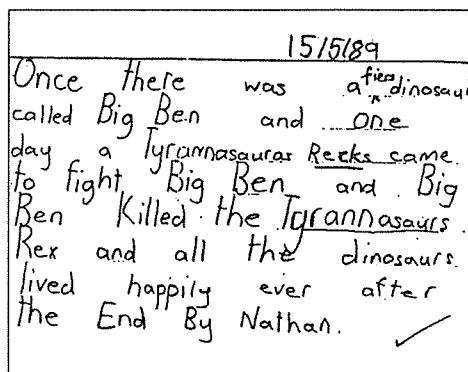 15/5/89
Once there was a fierc dinosaur
called Big Ben and one
day a Tyrannasauras Reeks came
to fight Big Ben and Big
Ben Killed the Tyrannasaurs
Rex and all the dinosaurs.
lived happily ever after
the End By Nathan.